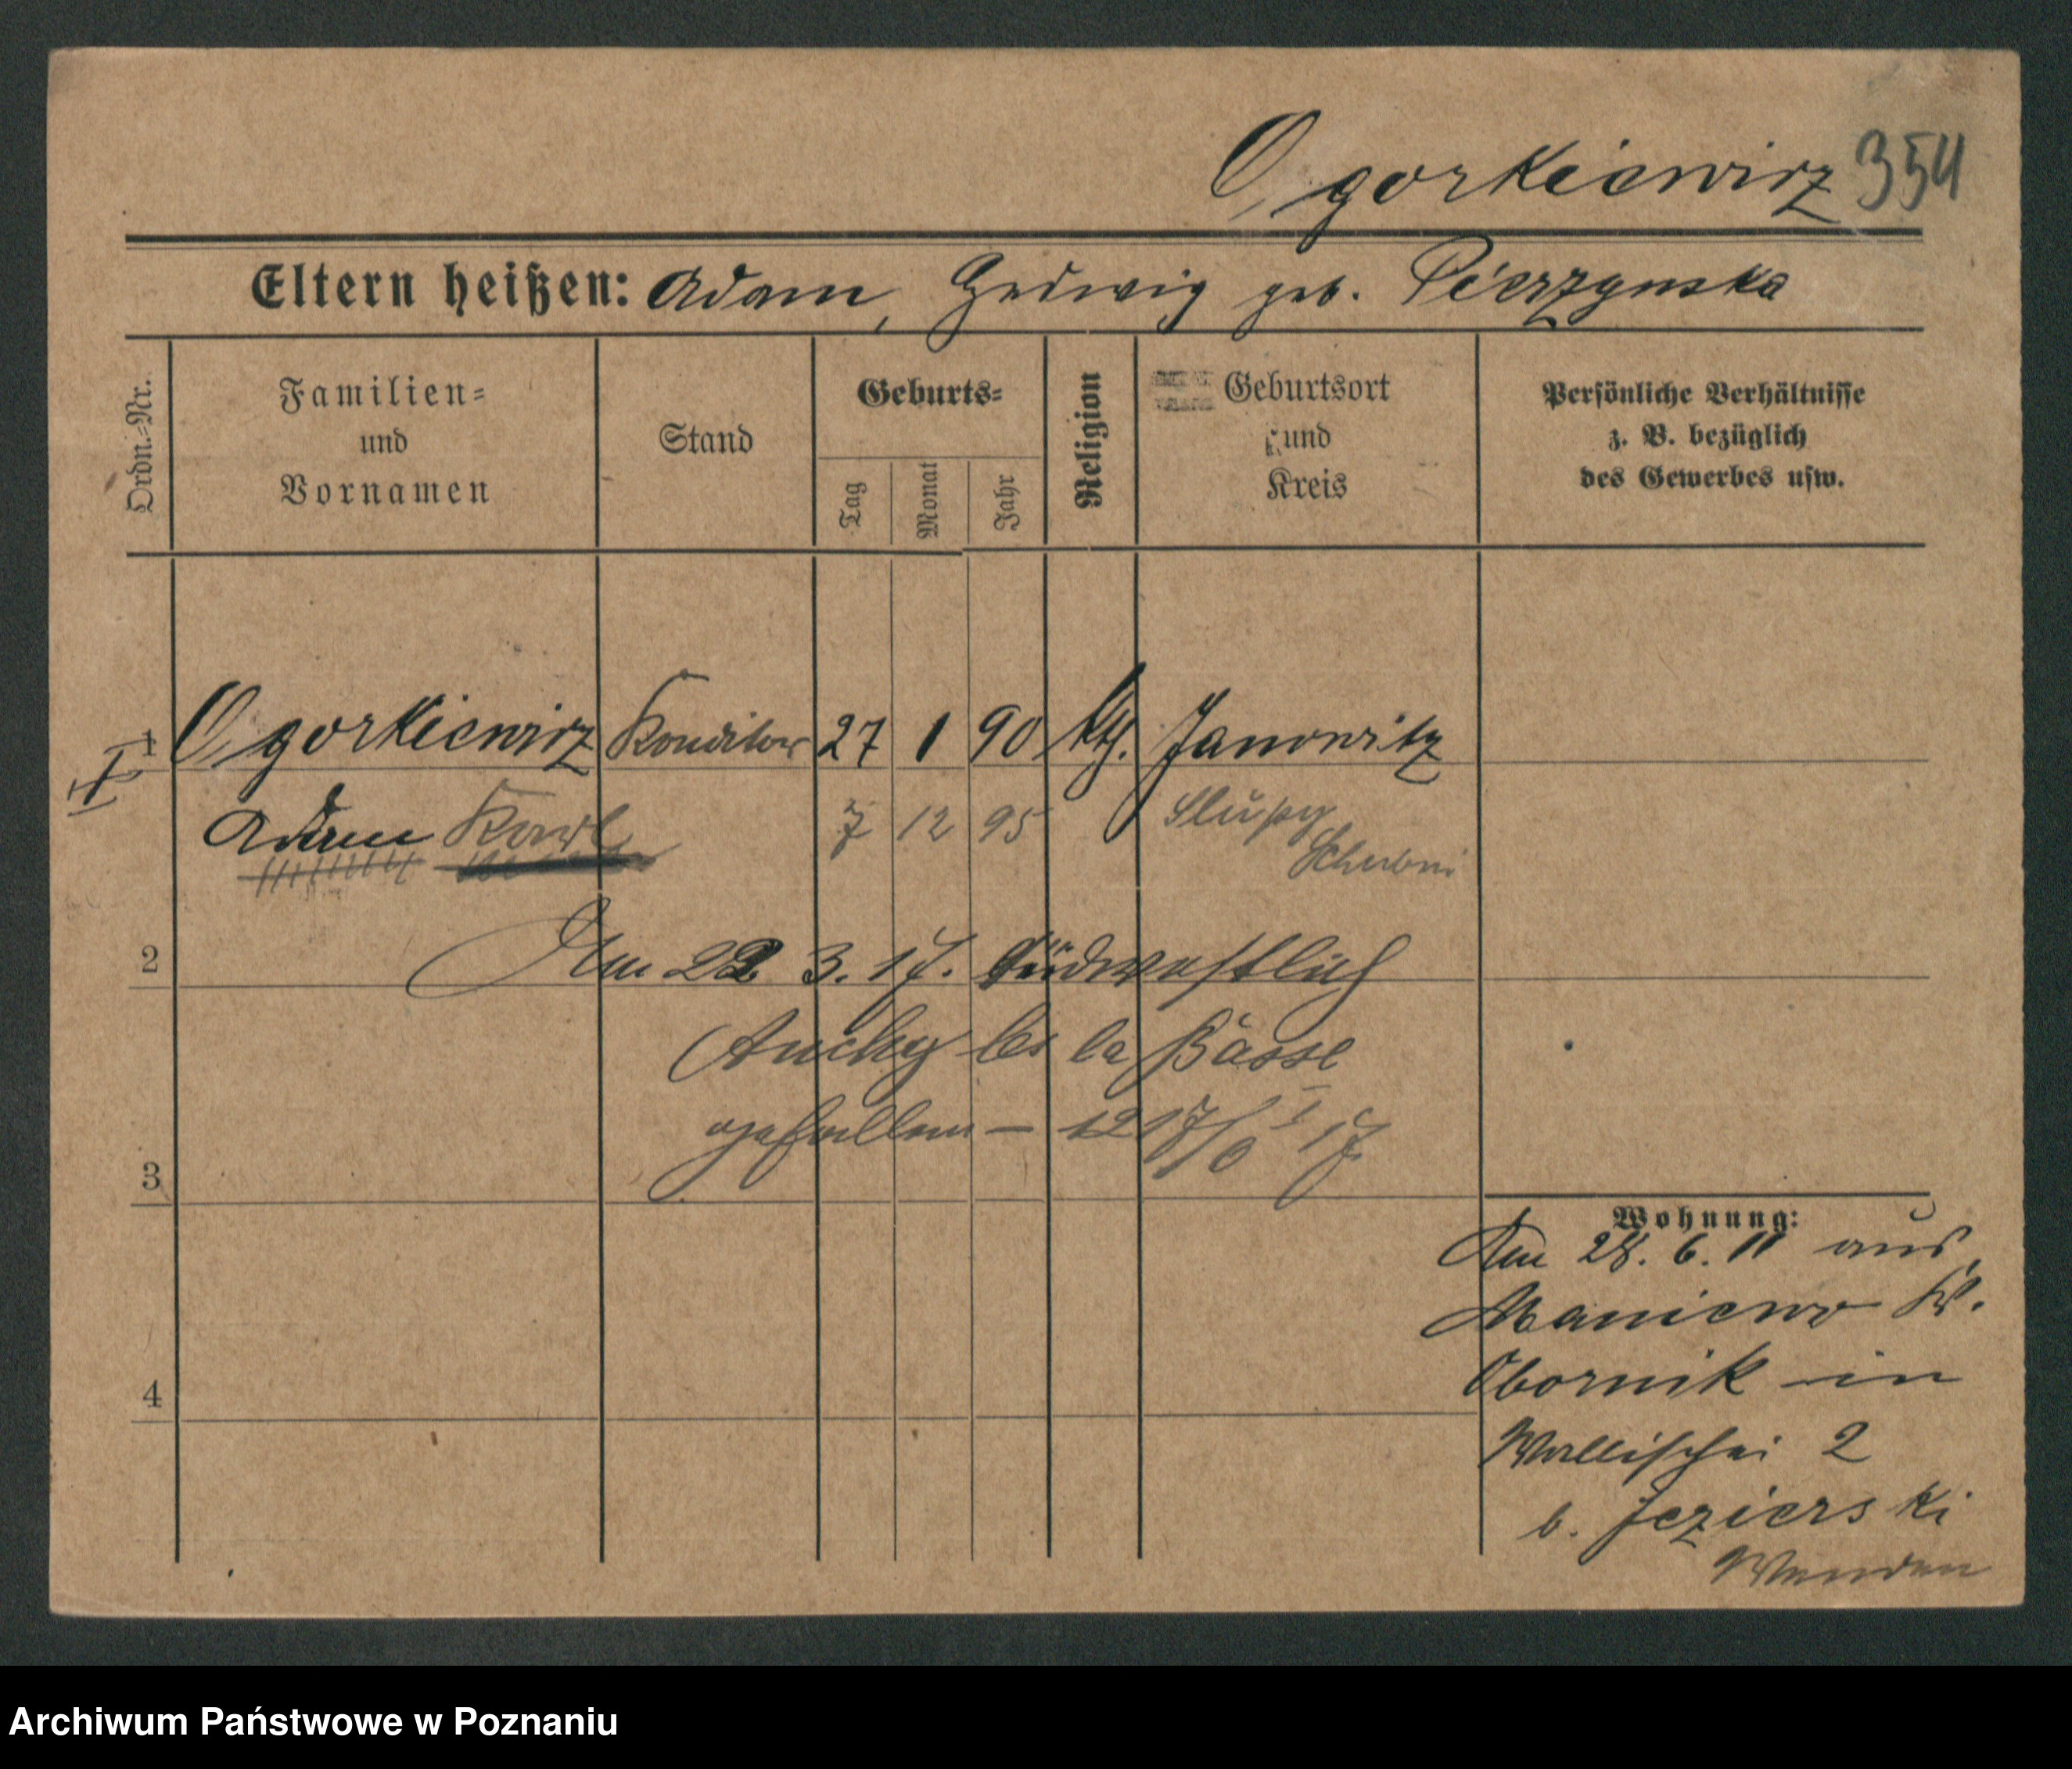 Ogorkiewicz 354
Eltern heißen: Adam, Hedwig geb. Pierzynska
Ordn.-Nr.
Familien-
und
Vornamen
Stand
Geburts-
Tag
Monat
Jahr
Religion
Geburtsort
und
Kreis
Persönliche Verhältnisse
z. B. bezüglich
des Gewerbes usw.
1 Ogorkiewicz Konditor 27 1 90 kth. Janowitz
Adam Karl 7 12 95 Slupy
Schubin
2 Am 22 3. 17. südwestlich
Auchy les la Bassé
3 gefallen — 17
4
Wohnung:
Am 28. 6. 11 aus
Maniewo Kr.
Obornik in
Wallischei 2
b. Jezierski